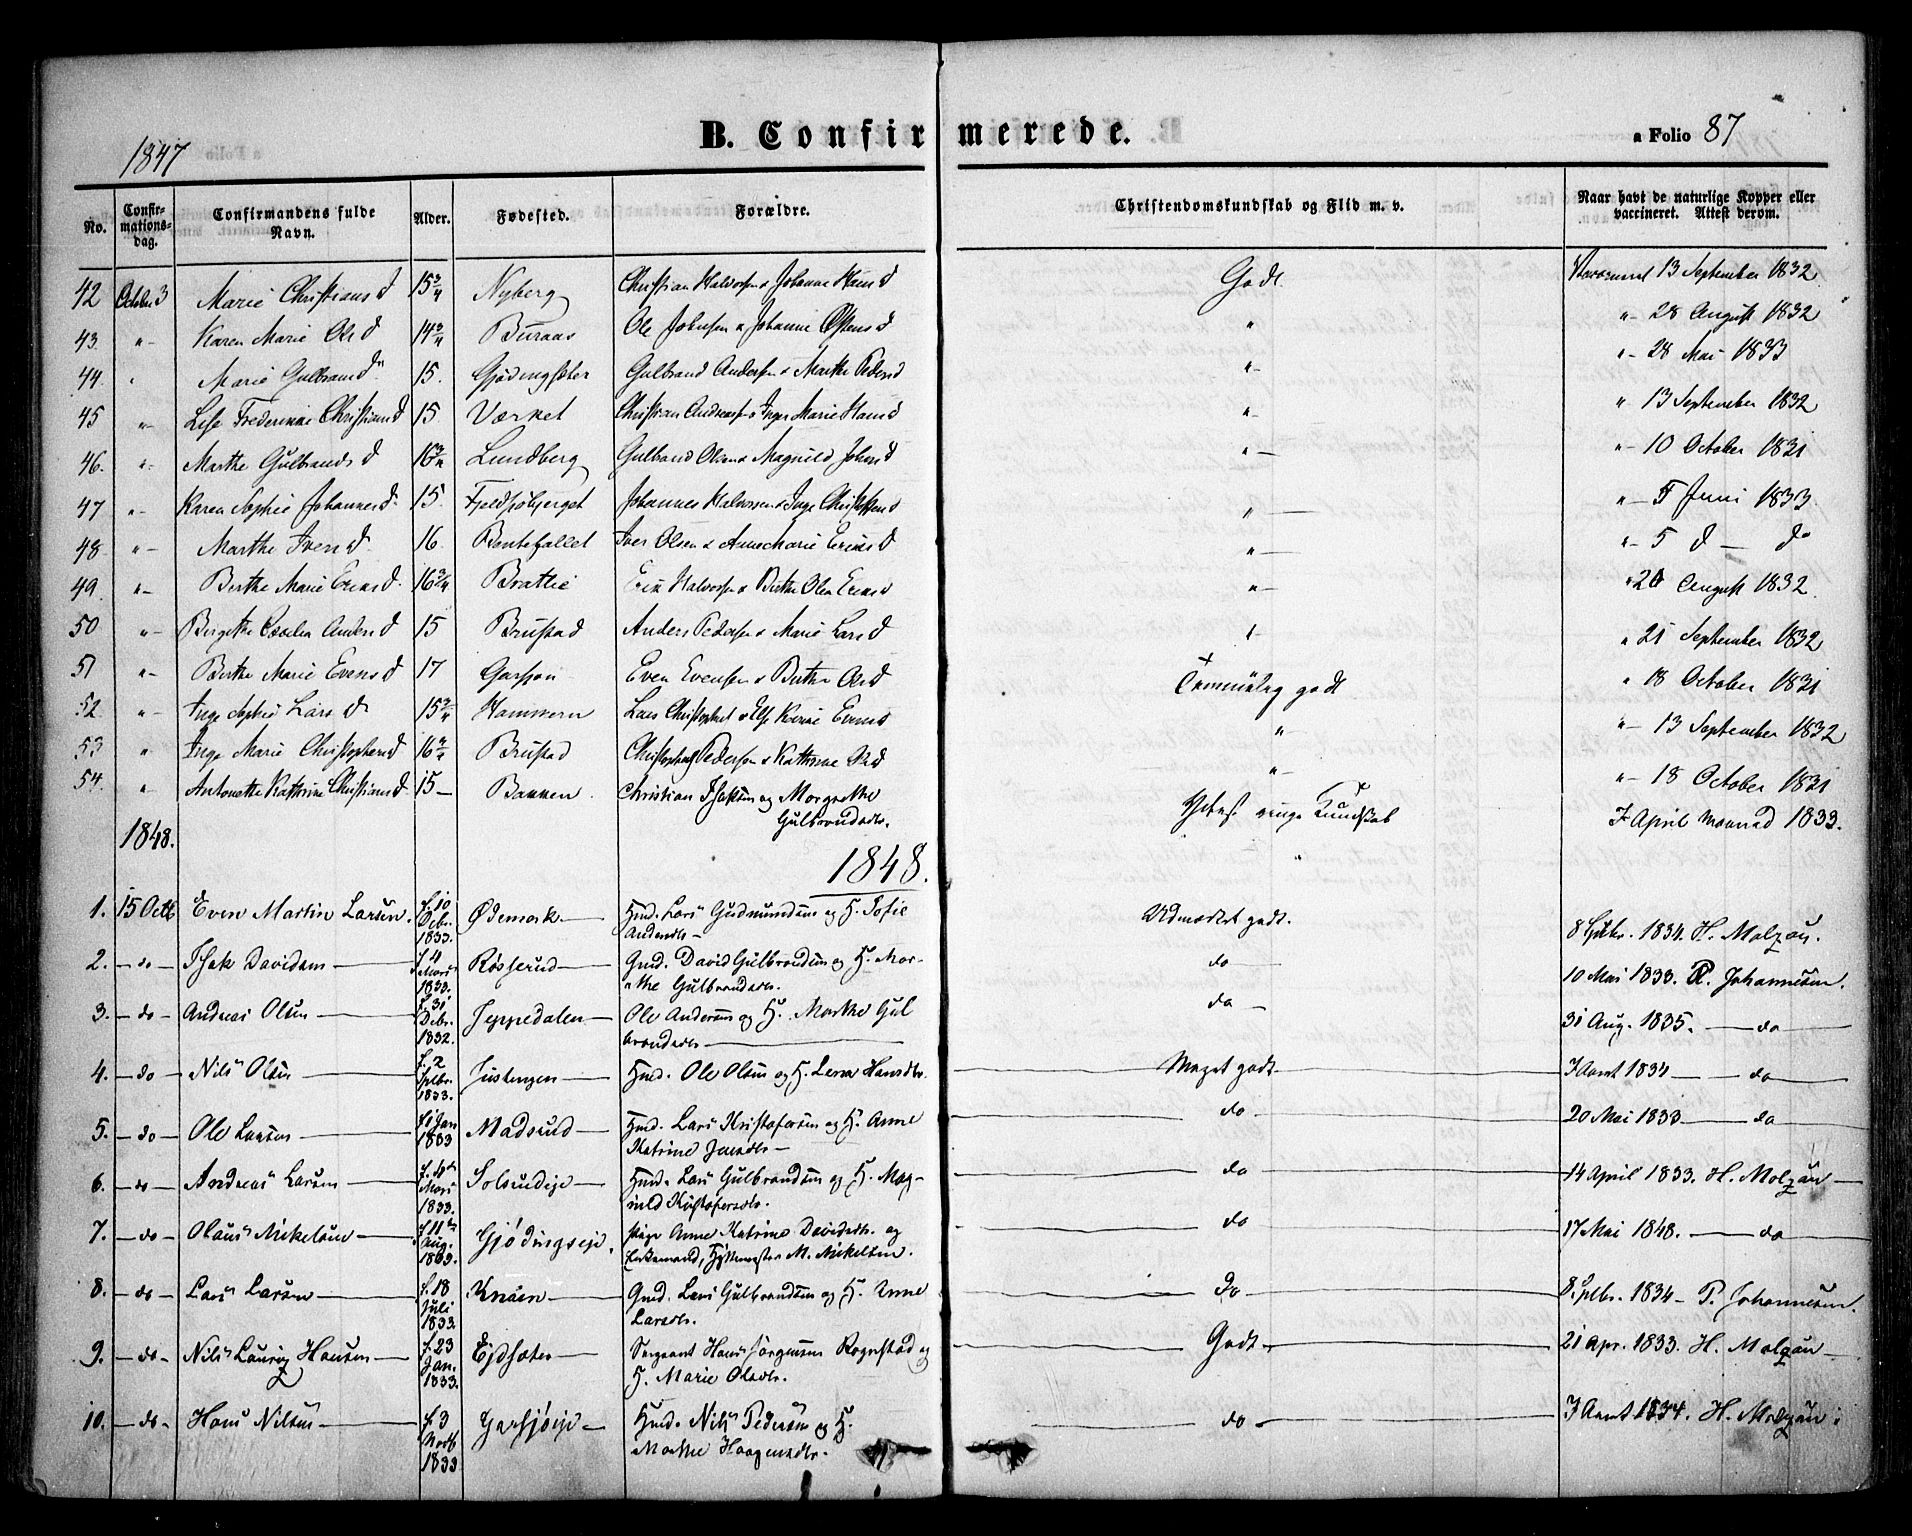 1847
B. Confirmerede.
a Folio 87
No. Confirmationsdag. Confirmandens fulde Navn. Alder. Fødested. Forældre. Christendomskundskab og Flid m. v. Naar havt de naturlige Kopper eller vaccineret. Attest derom.
42 October 3 Marie Christians D 15 3/4 Nyberg Christian Halvorsen & Johanne Hans D Godt 13 September 1832
43 "- Karen Marie Ols D 14 3/4 Buraas Ole Johnsen & Johanne Østens D " "- 28 August 1832
44. " Marie Gulbrands D 15. Gjødingsæter Gulbrand Andersen & Marthe Peders D "- "- 28 Mai 1833
45 "- Lise Frederikke Christians D 15 Værket Christian Andersen & Inger Marie Hans D "- " 13 September 1832
46. "- Marthe Gulbrands D 16 3/4 Lundberg Gulbrand Olsen & Magnild Johns D "- "- 10 October 1831
47 "- Karen Sophie Johannes D 15. Fjeldsøbjerget Johannes Halvorsen & Inge Christophers D "- "- 5 Juni 1833
48 "- Marthe Ivers D. 16 Bentefallet Iver Olsen & Anne Marie Eriks D "- "- 5 d - do
49. "- Berthe Marie Eriks D. 16 3/4 Bratlie Erik Halvorsen & Berthe Olea Eriks D "- " 26 August 1832
50 "- Bergithe Cæcilia Anders D 15 Brustad Anders Pedersen & Marie Lars D "- " 21 September 1832
51 "- Berthe Marie Evens D 17 Garsjøn Even Evensen & Berthe Ols D Temmelig godt " 18 October 1831
52. "- Inge Sophie Lars D 15 3/4 Hammeren Lars Christophersen & Else Karine Eriks D "- "- 13 September 1832
53 " Inge Marie Christophers D 16 3/4 Brustad Christopher Pedersen & Kathrine Ols D "- "- 18 October 1831
54. " Antonette Kathrine Christians D 15 - Bakken Christian Isaksen og Margrethe Gulbrandsdtr. Yderst ringe Kundskab 7 April 1833.
1848.
1848.
1. 15 Octb Even Martin Larsen. f. 10 Decbr. 1833. Ødemark Gmd. Lars Gudmundsen og H. Sofie Andersdtr. Udmærket godt. 8 Sptbr. 1834. H. Molzau.
2. - do - Isak Davidsen f. 4 Marts 1833. Røsserud Gmd. David Gulbrandsen og H. Marthe Gulbrandsdtr. do 10 Mai 1833. P. Johannesen.
3. - do - Andreas Olsen f. 31 Decbr. 1832. Jeppedalen Ole Andersen og H. Marthe Gulbrandsdtr. do 31 Aug. 1835. - do
4. - do Nils Olsen f. 2 Sptbr. 1833. Justengen Hmd. Ole Olsen og H. Lena Hansdtr. Meget godt. 1834 - do
5. - do - Ole Larsen f. 1 Jan 1833 Madsrud Hmd. Lars Kristofersen og H. Anne Katrine Jensdtr. do 20 Mai 1833 - do
6. - do - Andreas Larsen f. Mars 1833. Solsrudeje Hmd. Lars Gulbrandsen og H. Magnild Kristofersdtr. do 14 April 1833. H. Molzau
7. - do - Olaus Mikelsen f. 11 Aug. 1833. Gjødingseje. Pige Anne Katrine Davidsdtr. og M. Mikelsen. do 17 Mai 1848. - do
8. - do - Lars Larsen f. 18 Juli 1833. Knaien Gmd. Lars Gulbrandsen og H. Anne Larsdtr. do 8 Sptbr. 1834 - P. Johannesen.
9. - do - Nils Lauritz Hansen f. 23 Jan. 1833. Ejdsæter Sergeant Hans Jørgensen Rognstad og H. Marie Olsdtr. Godt 21 Apr. 1833. H. Molzau
10. - do - Hans Nilsen f. 3 1833 Garsjøeje Hmd. Nils Pedersen og H. Marthe Haagensdtr. do 1834. H. Molzau